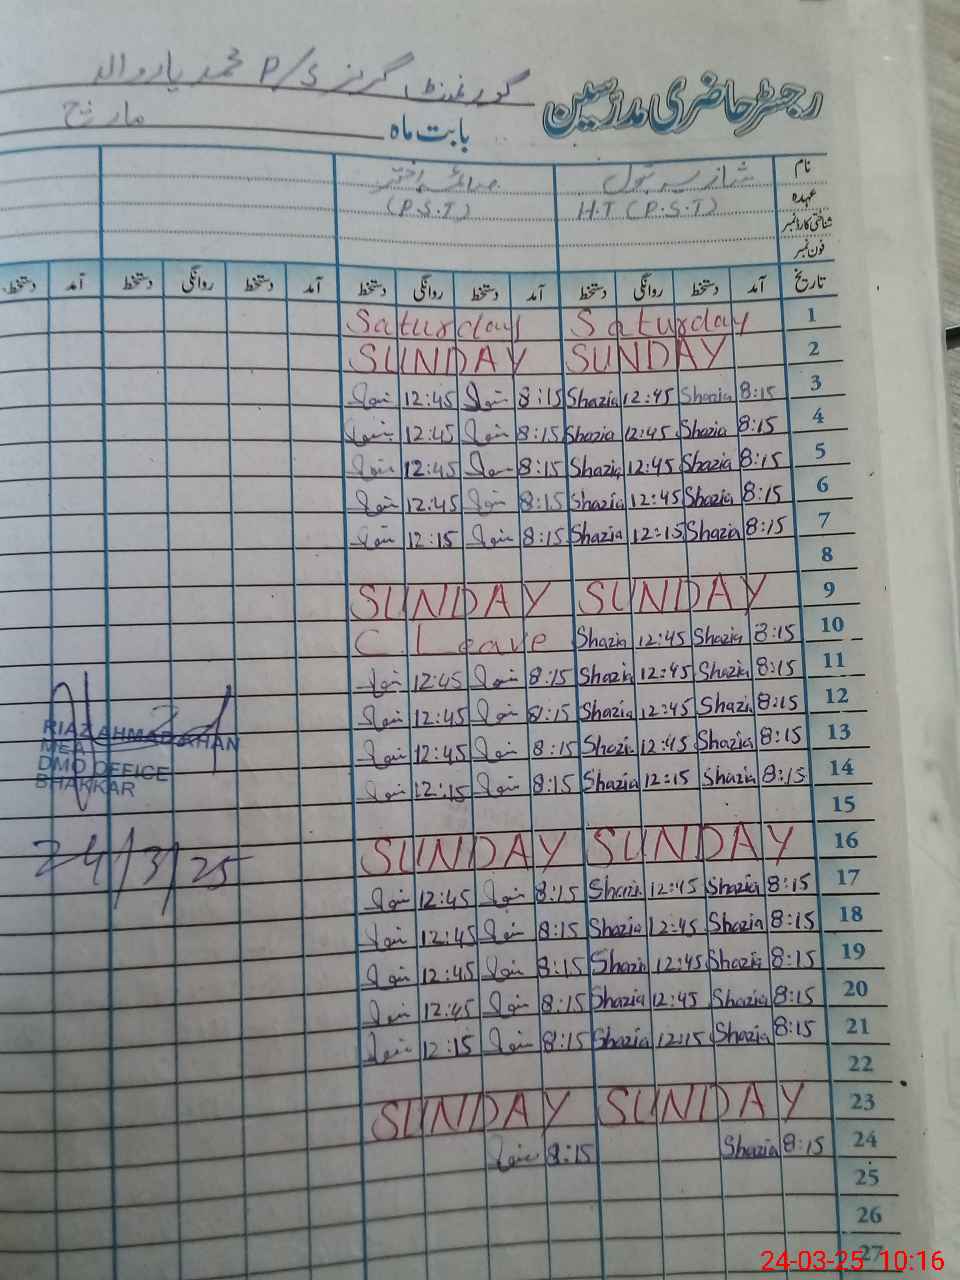 رجسٹر حاضری مدرسین گورنمنٹ گرلز P/S محمد یار والہ
بابت ماہ مارچ
نام شازیہ بتول
عہدہ H.T (P.S.T) (P.S.T)
شناختی کارڈ نمبر
فون نمبر
تاریخ آمد دستخط روانگی دستخط آمد دستخط روانگی دستخط آمد دستخط روانگی دستخط آمد دستخط
1 Saturday Saturday
2 SUNDAY SUNDAY
3 8:15 Shazia 12:45 Shazia 8:15 12:45
4 8:15 Shazia 12:45 Shazia 8:15 12:45
5 8:15 Shazia 12:45 Shazia 8:15 12:45
6 8:15 Shazia 12:45 Shazia 8:15 12:45
7 8:15 Shazia 12:15 Shazia 8:15 12:15
8
9 SUNDAY SUNDAY
10 8:15 Shazia 12:45 Shazia C. Leave
11 8:15 Shazia 12:45 Shazia 8:15 12:45
12 8:15 Shazia 12:45 Shazia 8:15 12:45
13 8:15 Shazia 12:45 Shazia 8:15 12:45
14 8:15 Shazia 12:15 Shazia 8:15 12:15
15
16 SUNDAY SUNDAY
17 8:15 Shazia 12:45 Shazia 8:15 12:45
18 8:15 Shazia 12:45 Shazia 8:15 12:45
19 8:15 Shazia 12:45 Shazia 8:15 12:45
20 8:15 Shazia 12:45 Shazia 8:15 12:45
21 8:15 Shazia 12:15 Shazia 8:15 12:15
22
23 SUNDAY SUNDAY
24 8:15 Shazia 8:15
25
26
27
RIAZ AHMAD KHAN
MEA
DMO OFFICE
BHAKKAR
24/3/25
24-03-25 10:16